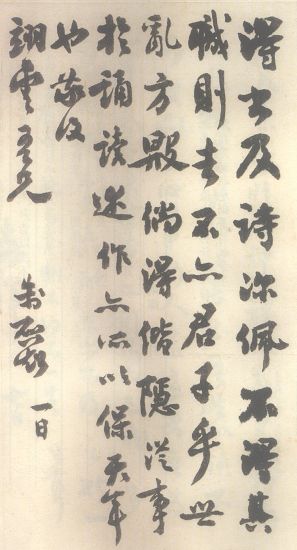 得書及詩深佩不得其
職則去不亦君子乎世
亂方殷倘得偕隱從事
於誦讀述作亦所以保天年
也敬復
翊雲吾兄 一日